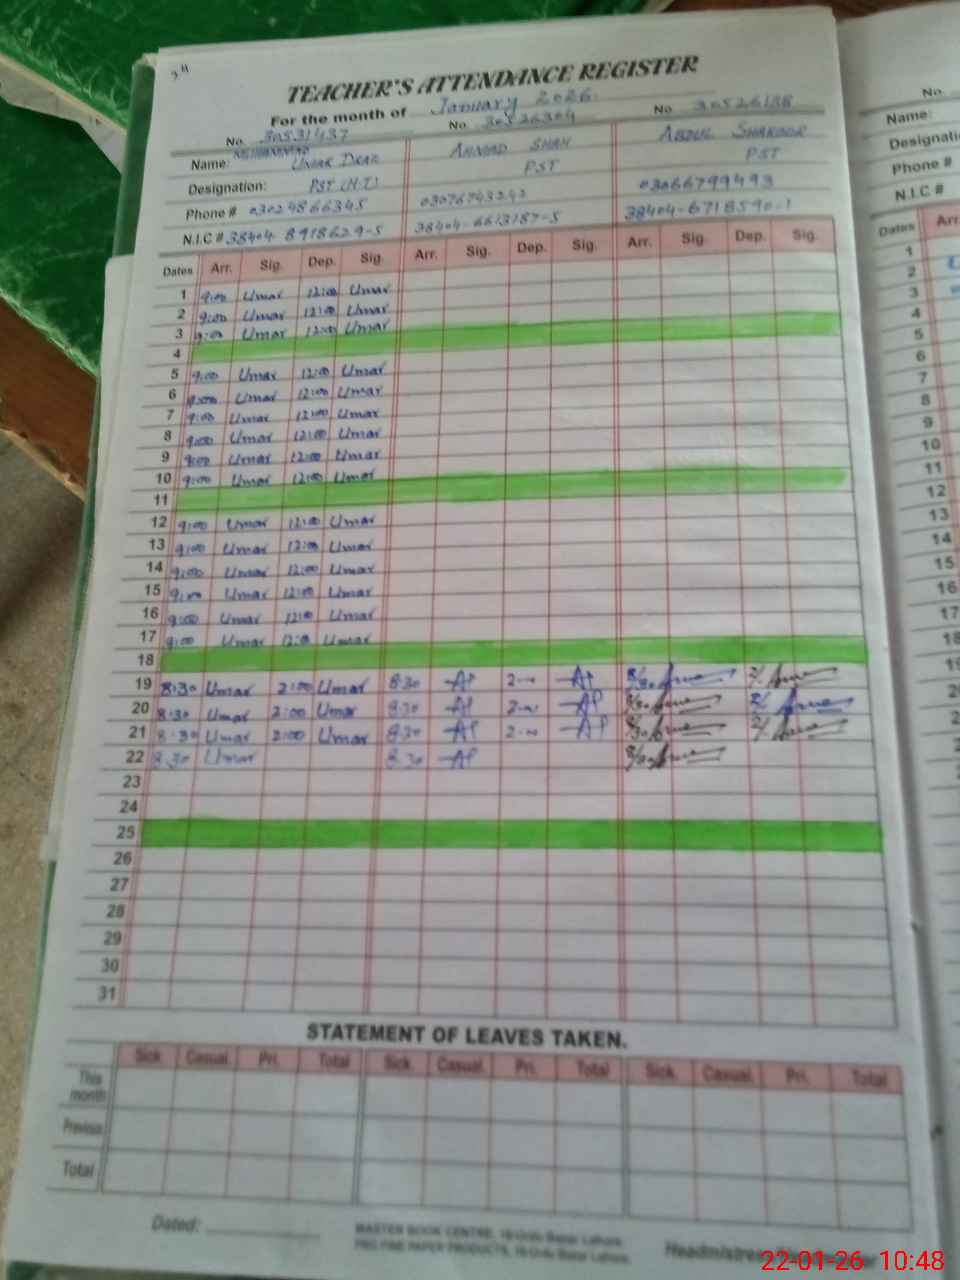 TEACHER'S ATTENDANCE REGISTER
For the month of January 2026.
No. 30531437 No. 30526304 No 30526138
Name: MUHAMMAD UMAR DRAZ AHMAD SHAH ABDUL SHAKOOR
Designation: PST (H.T) PST PST
Phone # 03024866345 03076743242 03066799493
N.I.C # 38404-8918629-5 38404-6613187-5 38404-6718590-1
Dates Arr. Sig. Dep. Sig. Arr. Sig. Dep. Sig. Arr. Sig. Dep. Sig.
1 9:00 Umar 12:00 Umar
2 9:00 Umar 12:00 Umar
3 9:00 Umar 12:00 Umar
4
5 9:00 Umar 12:00 Umar
6 9:00 Umar 12:00 Umar
7 9:00 Umar 12:00 Umar
8 9:00 Umar 12:00 Umar
9 9:00 Umar 12:00 Umar
10 9:00 Umar 12:00 Umar
11
12 9:00 Umar 12:00 Umar
13 9:00 Umar 12:00 Umar
14 9:00 Umar 12:00 Umar
15 9:00 Umar 12:00 Umar
16 9:00 Umar 12:00 Umar
17 9:00 Umar 12:00 Umar
18
19 8:30 Umar 2:00 Umar 8:30 2-00
20 8:30 Umar 2:00 Umar 8:30 2-00
21 8:30 Umar 2:00 Umar 8:30 2-00
22 8:30 Umar 8:30
23
24
25
26
27
28
29
30
31
STATEMENT OF LEAVES TAKEN.
Sick Casual Pri. Total Sick. Casual. Pri. Total Sick. Casual. Pri. Total
This month
Previous
Total
Dated:
MASTER BOOK CENTRE, 19-Urdu Bazar Lahore.
PRO FINE PAPER PRODUCTS, 19-Urdu Bazar Lahore.
Headmistress
No.
Name:
Designati
Phone #
N.I.C #
Dates Arr.
1
2
3
4
5
6
7
8
9
10
11
12
13
14
15
16
17
18
22-01-26 10:48